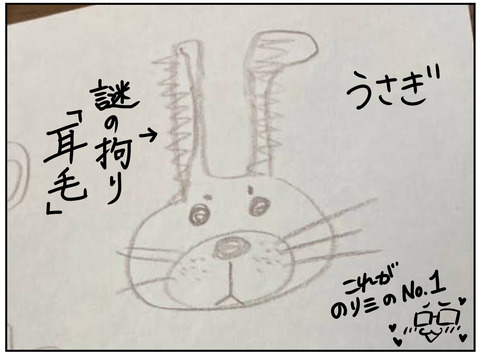 うさぎ
謎の拘り
「耳毛」
これが
のりミのNo.1